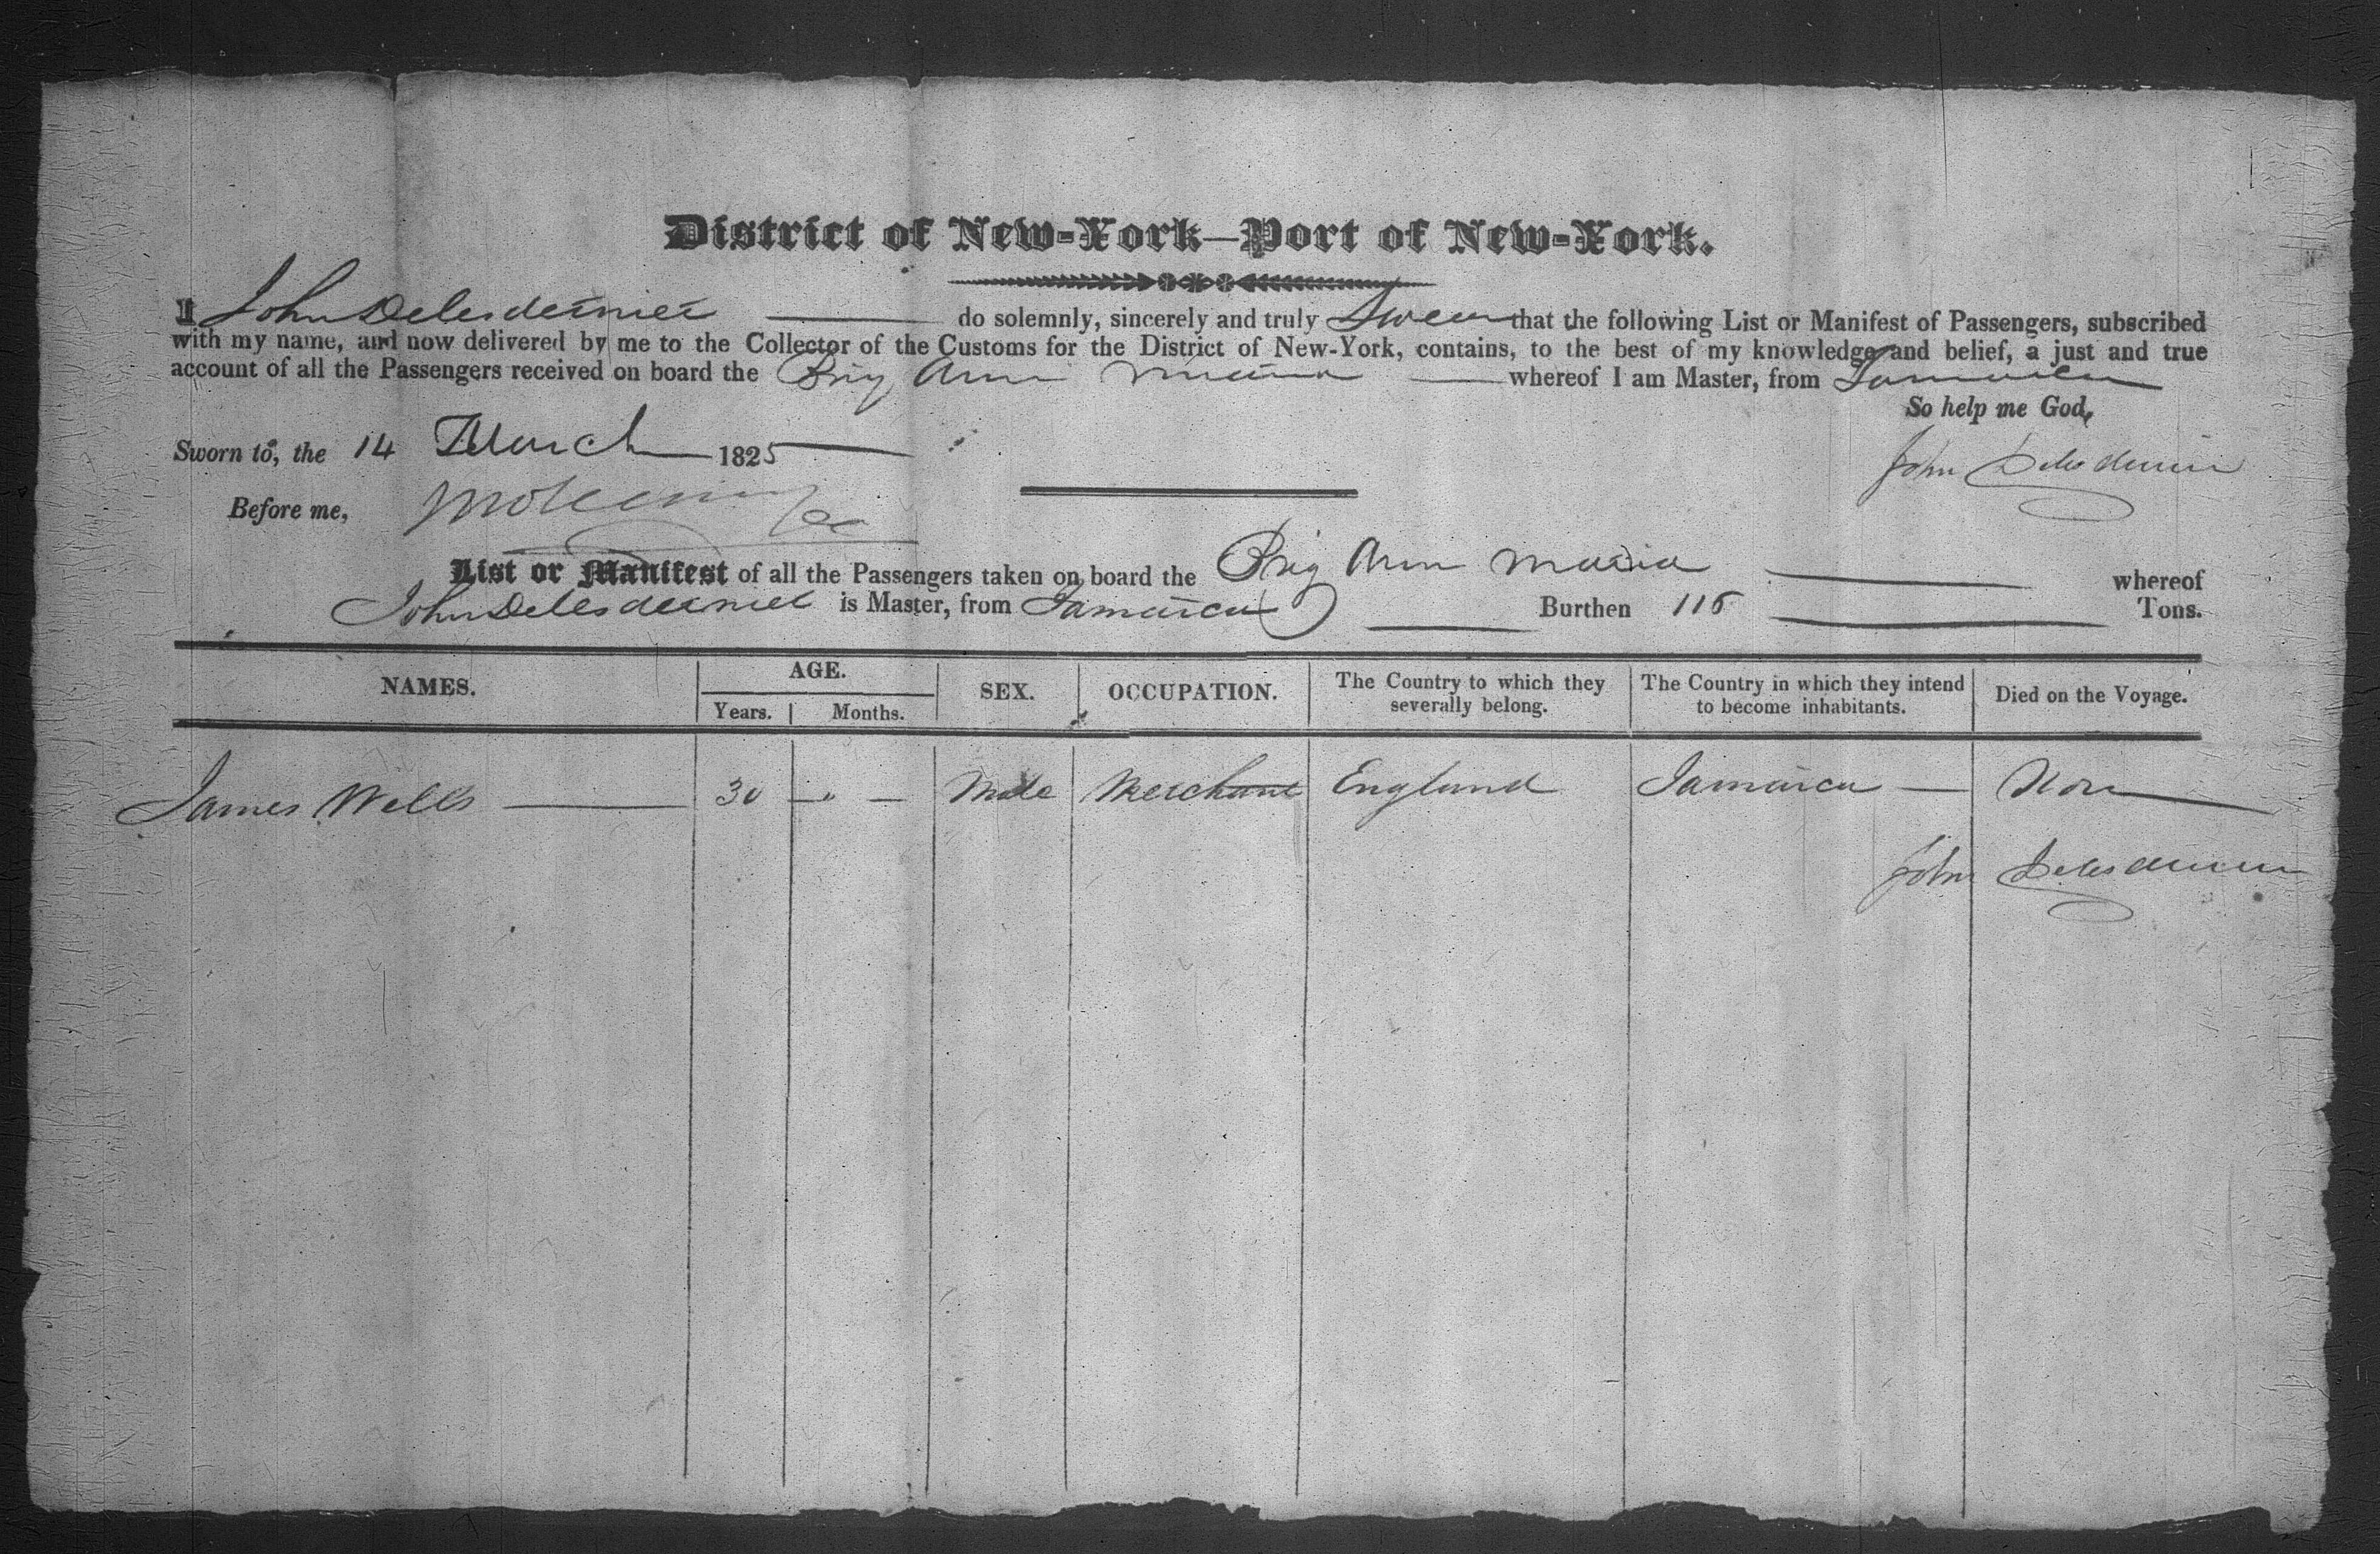 District of New-York—Port of New-York.
I John Delesdernier do solemnly, sincerely and truly Swear that the following List or Manifest of Passengers, subscribed
with my name, and now delivered by me to the Collector of the Customs for the District of New-York, contains, to the best of my knowledge and belief, a just and true
account of all the Passengers received on board the Brig Ann Maria whereof I am Master, from Jamaica
So help me God,
Sworn to, the 14 March 1825
John Delesdernier
Before me,
List or Manifest of all the Passengers taken on board the Brig Ann Maria whereof
John Delesdernier is Master, from Jamaica Burthen 116 Tons.
NAMES. AGE. SEX. OCCUPATION. The Country to which they severally belong. The Country in which they intend to become inhabitants. Died on the Voyage.
Years. Months.
James Wells 30 " Male Merchant England Jamaica Non
John Delesdernier